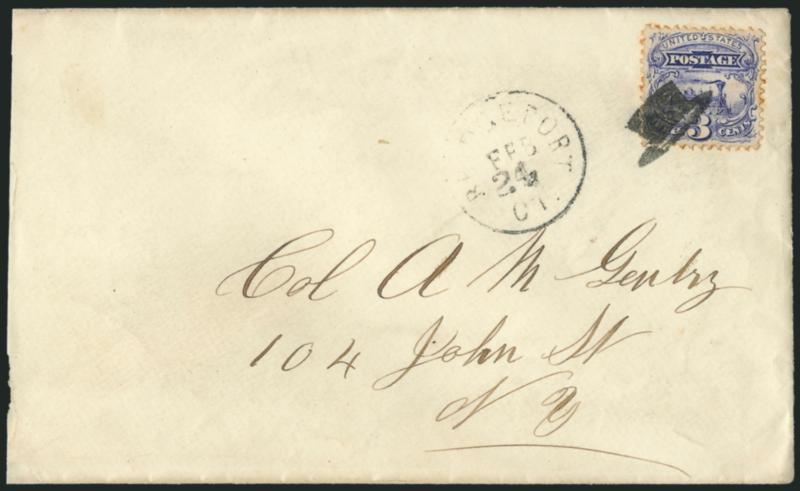 UNITED STATES
POSTAGE
3 CENTS
BRIDGEPORT
FEB
24
CT.
Col A M Gentry
104 John St
N Y